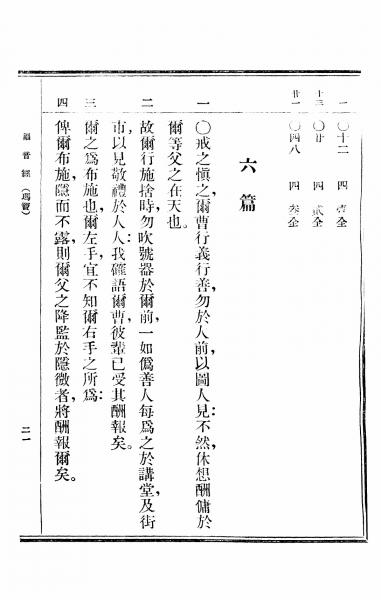 一 〇十二 四 壹全
十三 〇廿 四 貳全
廿一 〇四八 四 叁全
六篇
一 〇戒之愼之，爾曹行義行善，勿於人前，以圖人見：不然，休想酬傭於
爾等父之在天也。
二 故爾行施捨時，勿吹號器於爾前，一如僞善人每爲之於講堂，及街
市，以見敬禮於人人：我確語爾曹，彼輩已受其酬報矣。
三 爾之爲布施也，爾左手，宜不知爾右手之所爲：
四 俾爾布施，隱而不露，則爾父之降監於隱微者，將酬報爾矣。
福音經（瑪竇）
二一